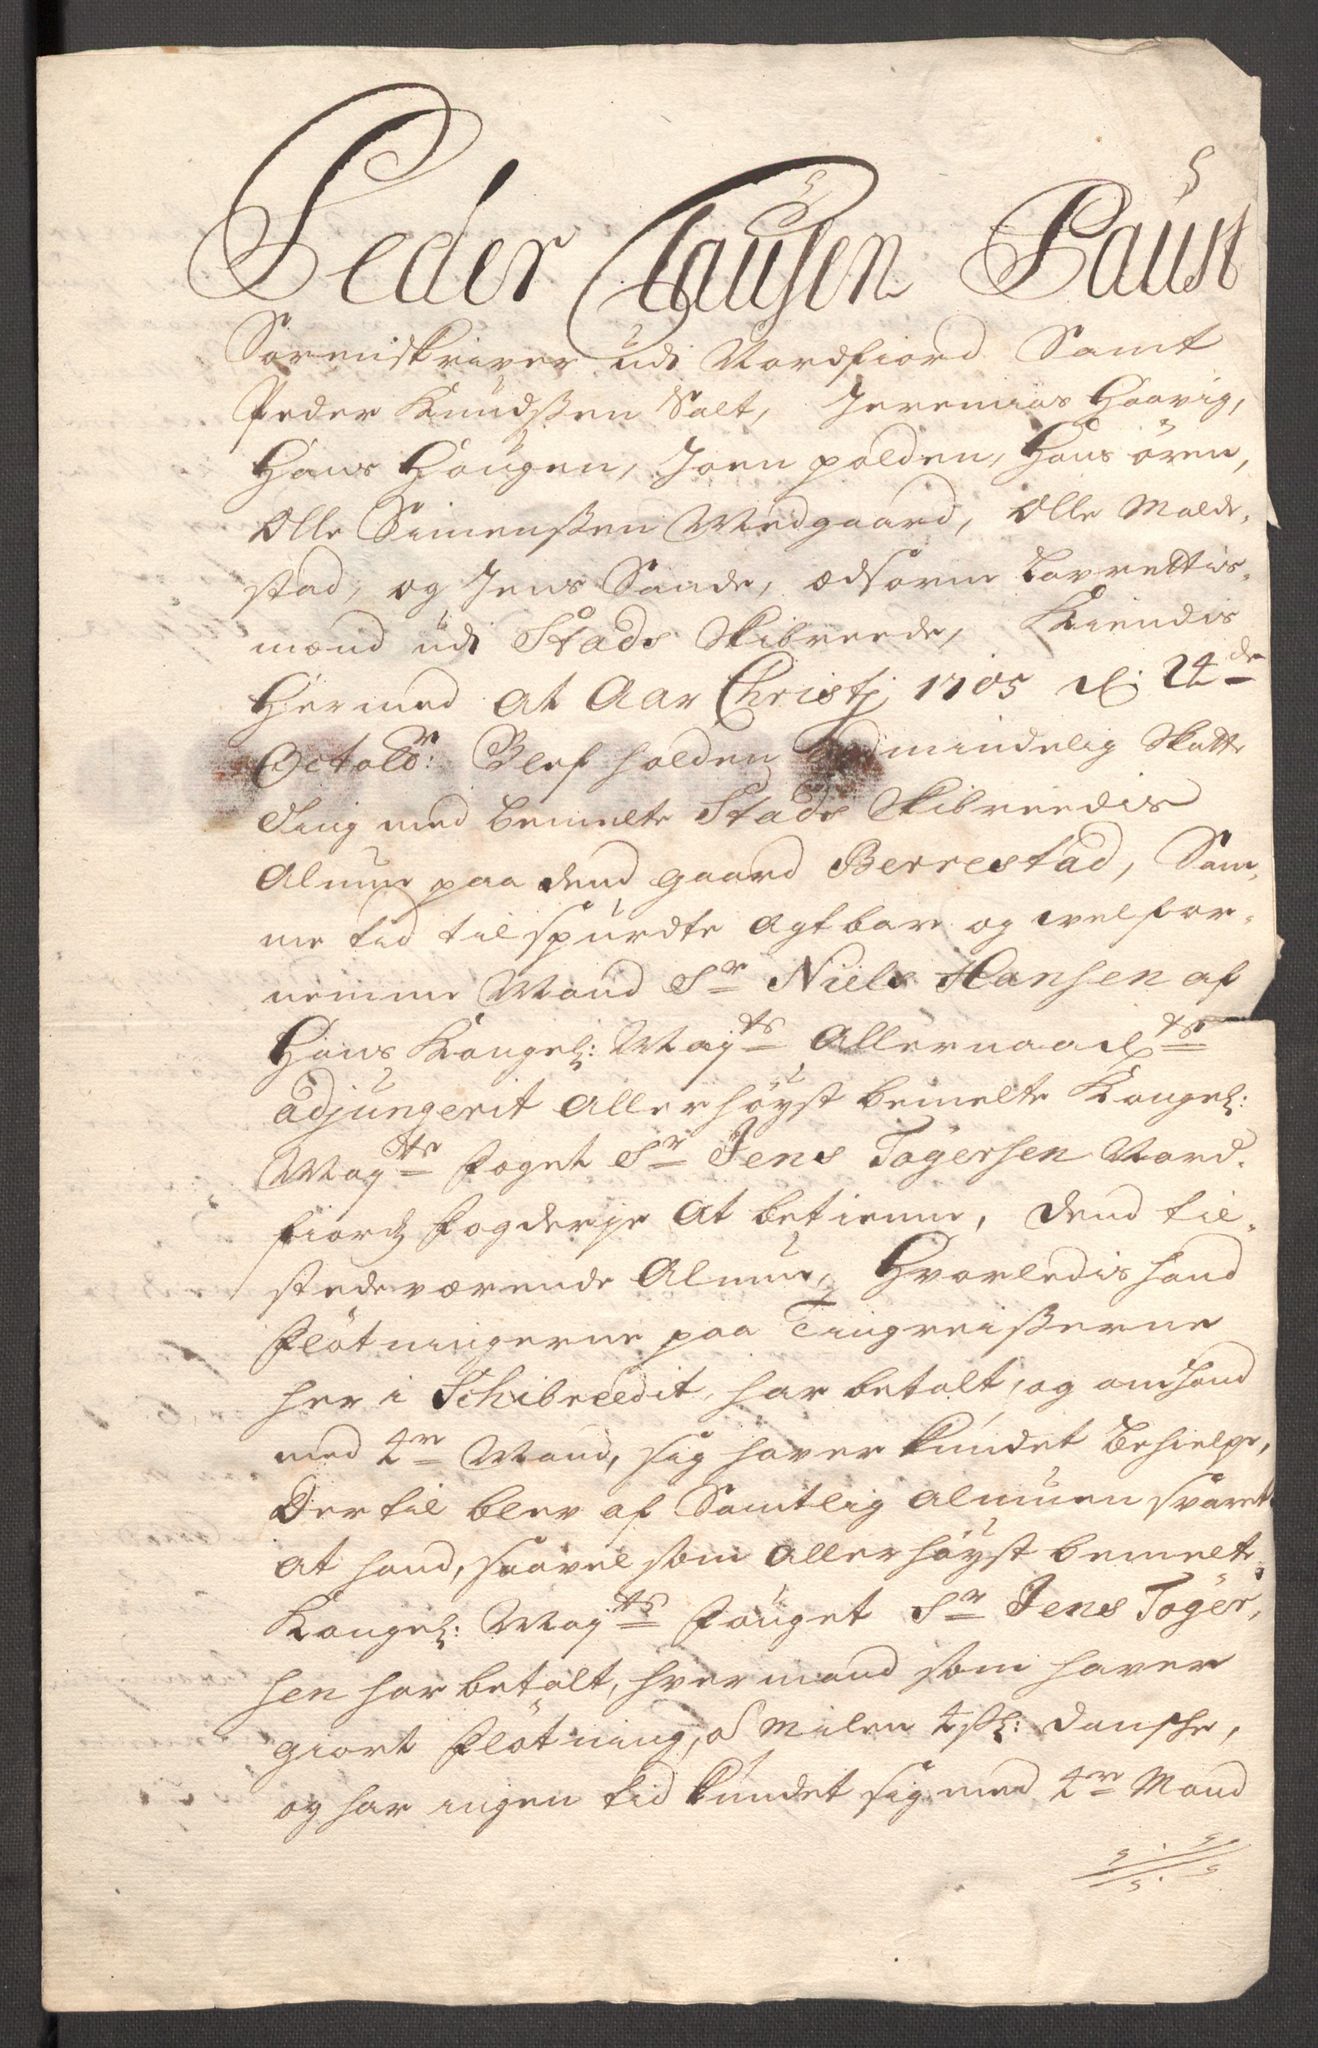 Peder Clausen Faust
Sorenskriver udi Nordfiord Samt
Peder Knudßen Salt, Jeremias Haavig,
Hans Hougen, Joen polden, Hans ören,
Olle Simenßen Wedgaard, Olle Malde,
stad, og Jens Sande, Edsorne Laurettis,
mænd udi Stads Skibreede, Kiendis
Hermed At Aar Christj 1705 d: 24de
Octobr: Blef holden almindelig Skatte
Ting med bemelte Stads Skibreedis
Almue paa dend gaard Berrestad, Sam,
me tid tilspurdte Agtbare og velfor,
nemme Mand Sr Niels Hansen af
Hans Kongel: Mayts Allernaadts
adjungerit Allerhöyst bemelte Kongel:
Mayts foget Sr Jens Tögersen Nord,
fiords fogderje At betienne, dend til,
stedeværende Almue, Hvorledis hand
flötningerne paa Tingreißerne
her i Schibreedit har betalt, og om hand
med 2re Mand, sig haver kundet behielpe,
Der til blev af Samtlig Almuen svaret
At hand, saavel som Allerhöyst bemelte
Kongel: Mayts fouget Sr Jens Töger,
sen har betalt, hver mand som haver
giort flötning, á Milen 4 sk: danske,
og har ingen tid kundet sig med 2re Mand